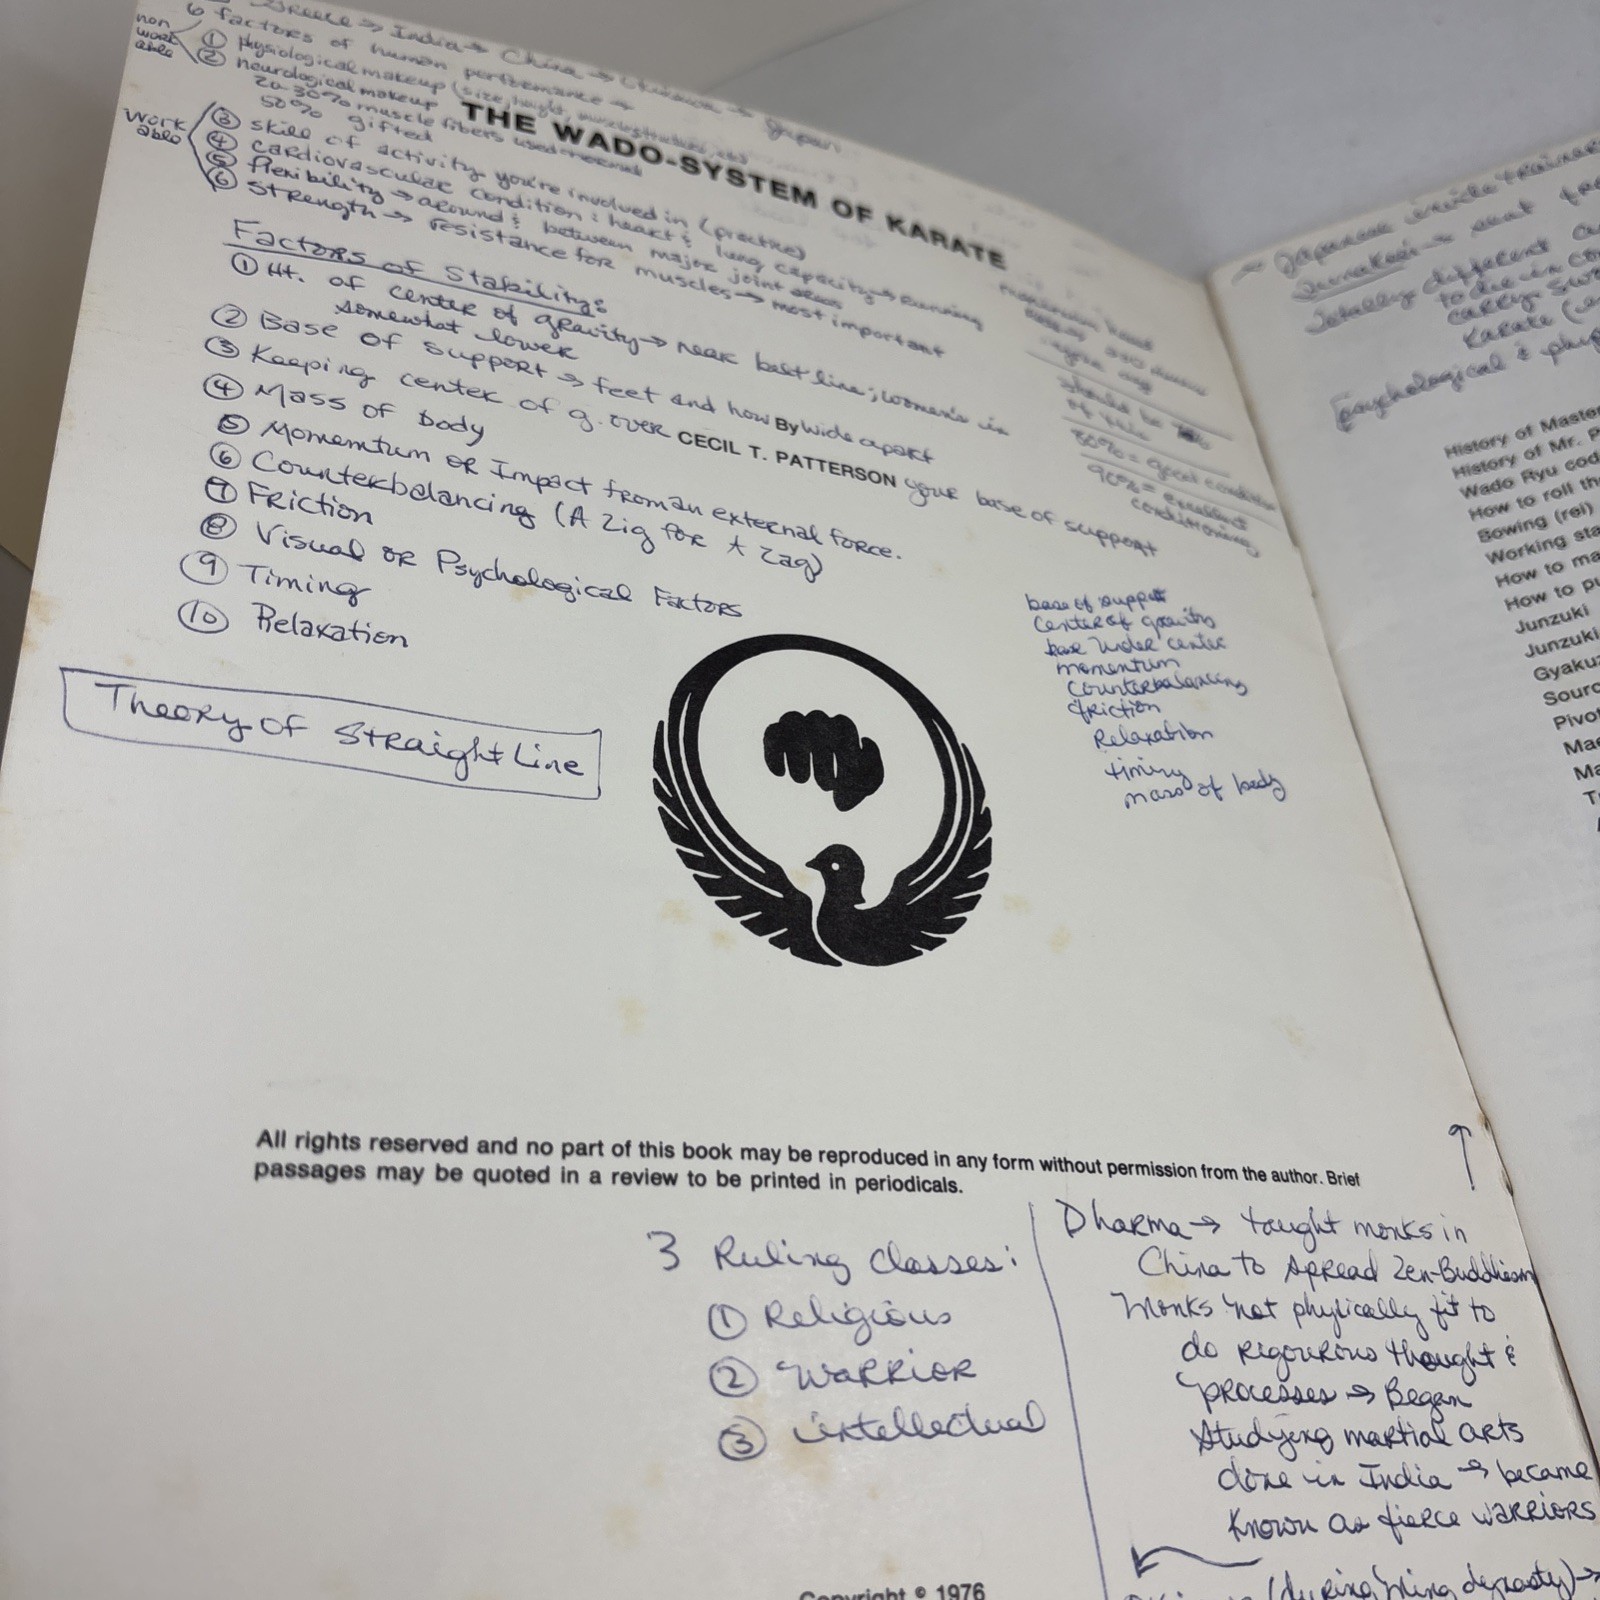 Greece → India → China → → Japan
6 factors of human performance →
non work able
① physiological makeup (size, height,
② neurological makeup
20-30% muscle fibers used normal
50% gifted
THE WADO-SYSTEM OF KARATE
Work able
③ skill of activity you're involved in (practice)
④ cardiovascular condition: heart & lung capacity → running
⑤ flexibility → around & between major joint areas
⑥ strength → resistance for muscles → most important
Factors of Stability:
① Ht. of center of gravity → near belt line; women's is
somewhat lower
② Base of support → feet and how wide apart
By
③ Keeping center of g. over your base of support
CECIL T. PATTERSON
④ Mass of body
⑤ Momemtum or Impact from an external force.
⑥ Counterbalancing (A Zig for A Zag)
⑦ Friction
⑧ Visual or Psychological Factors
⑨ Timing
⑩ Relaxation
should be
80% = good condition
90% = excellent
conditioning
base of support
center of gravity
base under center
momentum
counterbalancing
friction
Relaxation
timing
mass of body
Theory of Straight Line
All rights reserved and no part of this book may be reproduced in any form without permission from the author. Brief
passages may be quoted in a review to be printed in periodicals.
3 Ruling classes:
① Religious
② Warrior
③ intellectual
Dharma → taught monks in
China to spread Zen-Buddhism
Monks not phylically fit to
do rigourous thought &
processes → Began
Studying martial arts
done in India → became
known as fierce warriors
(during Ming dynasty) →
Copyright © 1976
Japanese
totally different
to die in
carry
Karate
psychological &
History of Master
History of Mr. P
Wado Ryu cod
How to roll th
Bowing (rei)
Working sta
How to ma
How to pu
Junzuki
Junzuki
Gyakuz
Sourc
Pivot
Mae
Ma
T